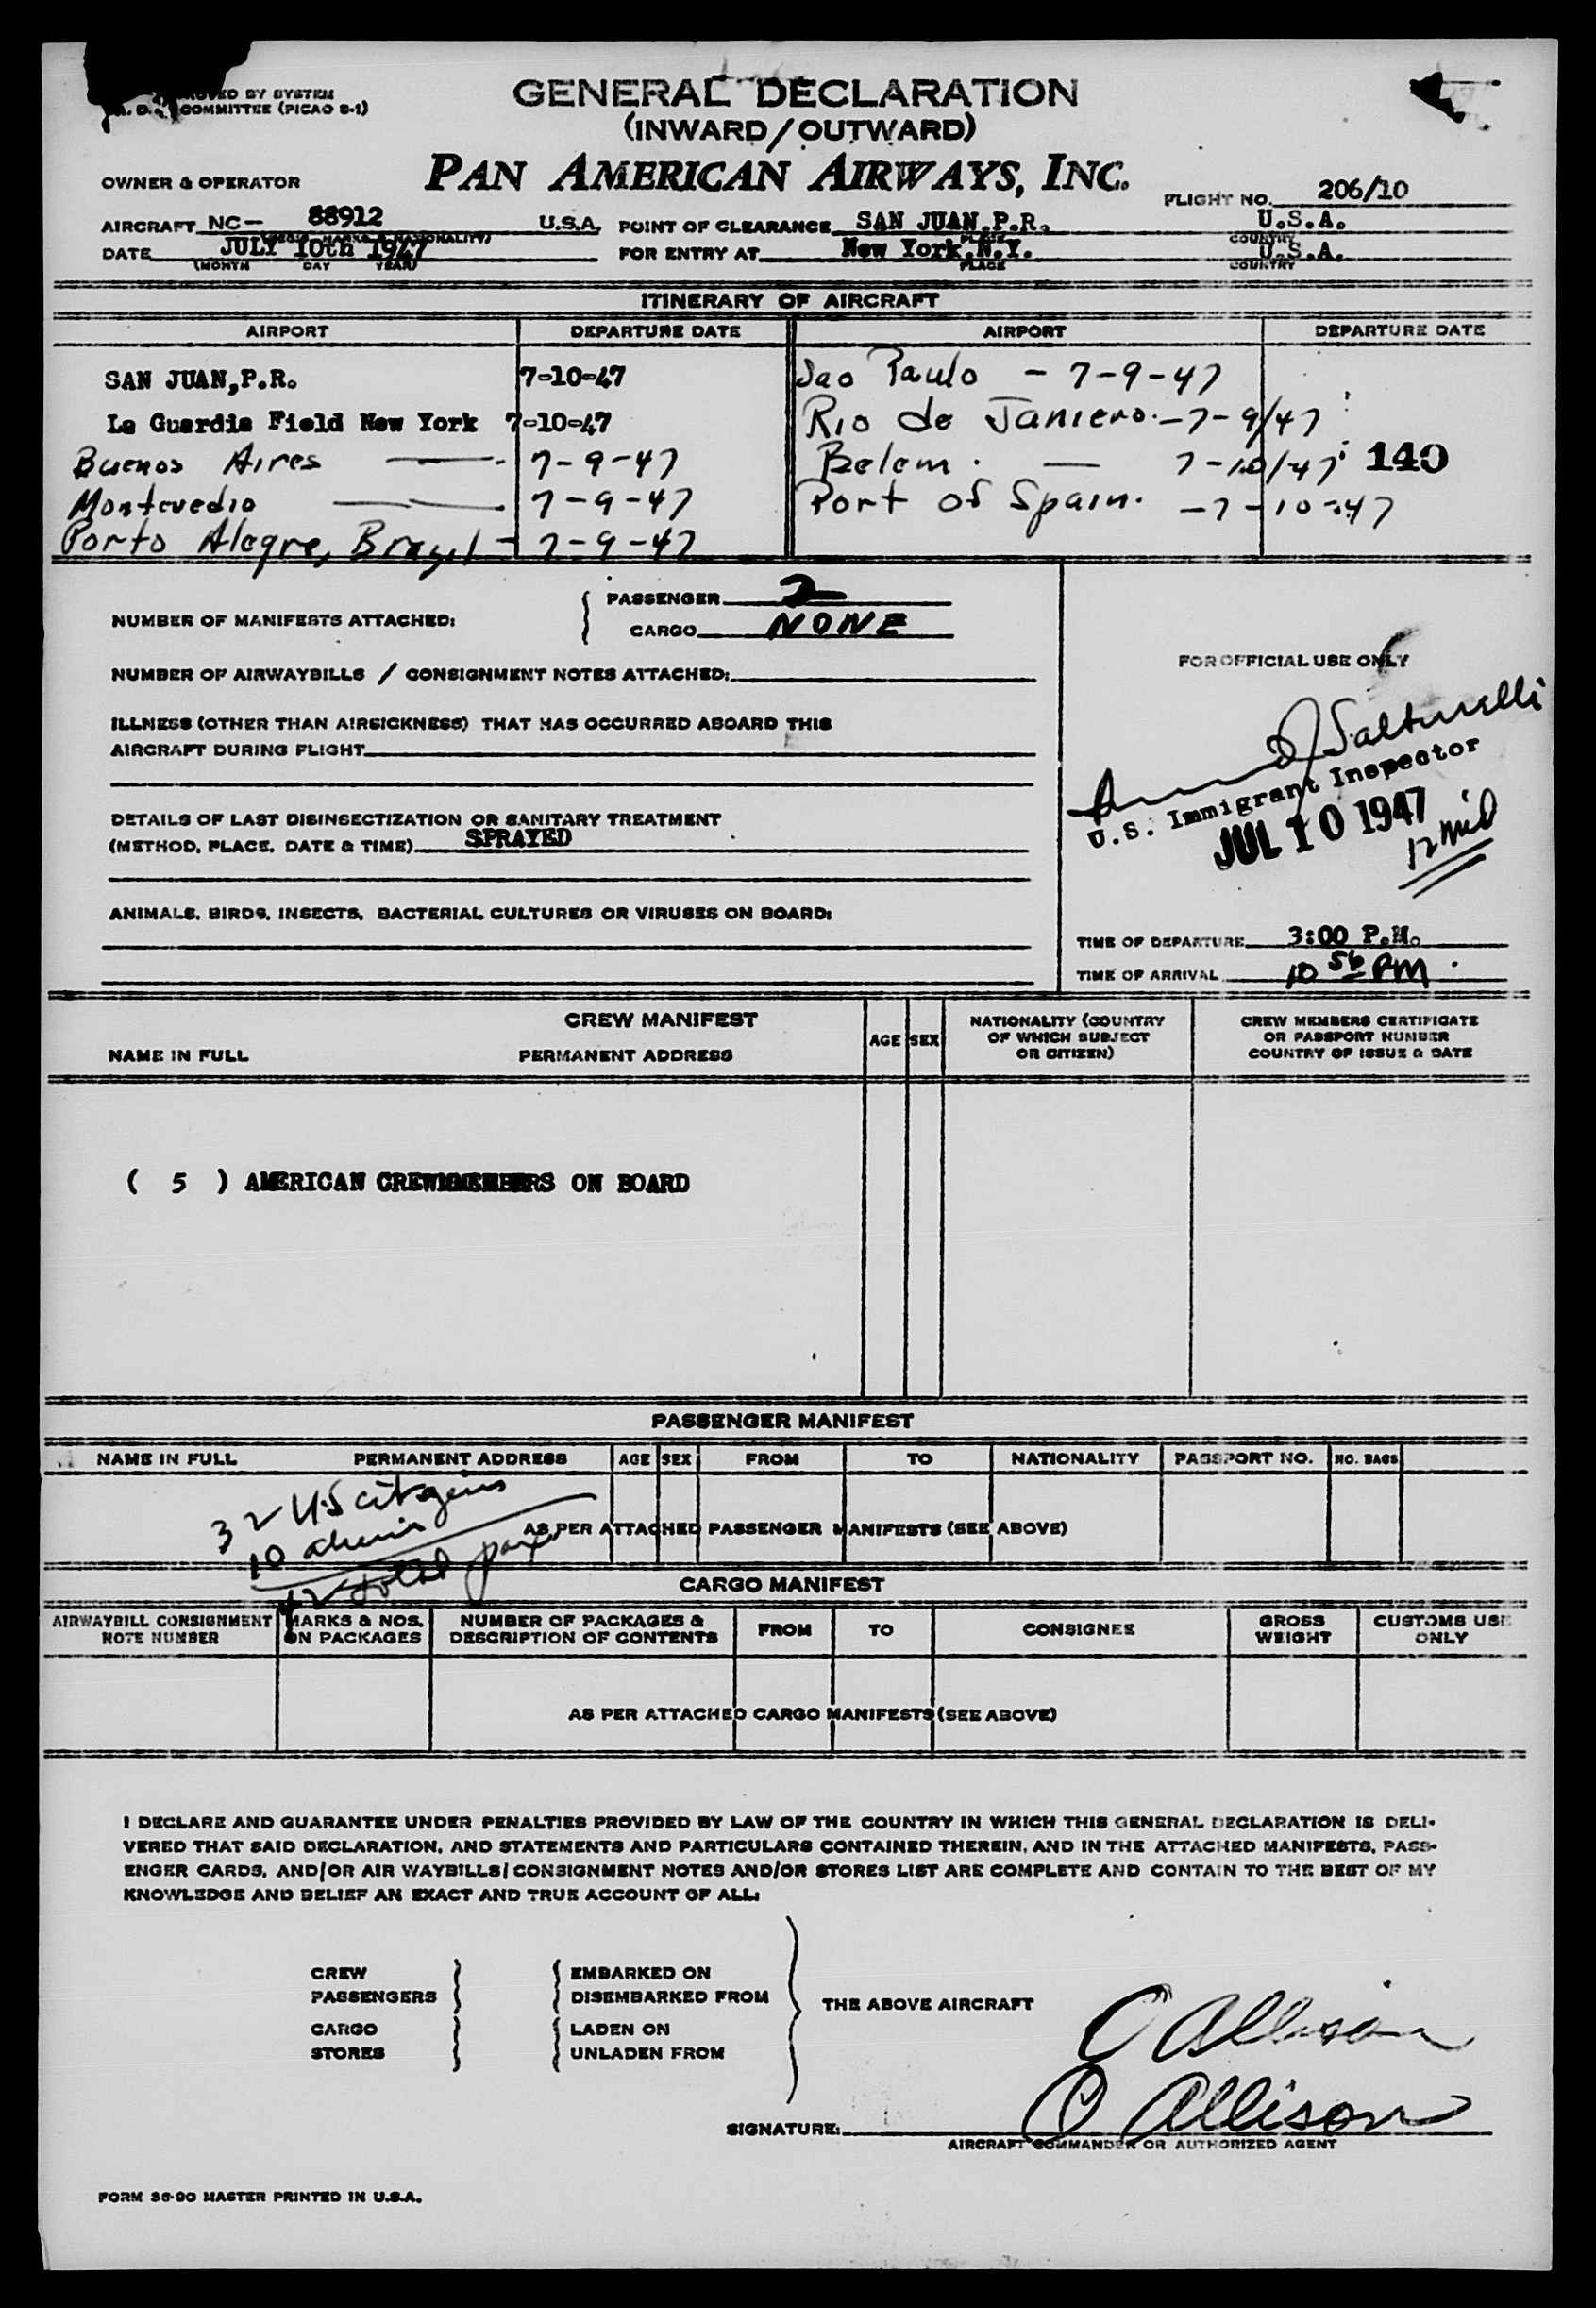 GENERAL DECLARATION
(INWARD/OUTWARD)
PAN AMERICAN AIRWAYS, INC.
ED BY SYSTEM
COMMITTEE (PICAO S-1)
OWNER & OPERATOR
FLIGHT NO. 206/10
AIRCRAFT NC- 88912 U.S.A. POINT OF CLEARANCE SAN JUAN,P.R. U.S.A.
(REGIS. MARKS & NATIONALITY) PLACE COUNTRY
DATE JULY 10th 1947 FOR ENTRY AT New York,N.Y. U.S.A.
(MONTH DAY YEAR) PLACE COUNTRY
ITINERARY OF AIRCRAFT
AIRPORT DEPARTURE DATE AIRPORT DEPARTURE DATE
SAN JUAN,P.R. 7-10-47 Sao Paulo - 7-9-47
La Guardia Field New York 7-10-47 Rio de Janiero. -7-9/47
Buenos Aires 7-9-47 Belem. - 7-10/47 140
Montevedio 7-9-47 Port of Spain. -7-10-47
Porto Alegre, Brazil - 7-9-47
NUMBER OF MANIFESTS ATTACHED: PASSENGER 2
CARGO NONE
NUMBER OF AIRWAYBILLS / CONSIGNMENT NOTES ATTACHED:
FOR OFFICIAL USE ONLY
ILLNESS (OTHER THAN AIRSICKNESS) THAT HAS OCCURRED ABOARD THIS
AIRCRAFT DURING FLIGHT
U.S. Immigrant Inspector
JUL 10 1947
DETAILS OF LAST DISINSECTIZATION OR SANITARY TREATMENT
(METHOD, PLACE, DATE & TIME) SPRAYED
ANIMALS, BIRDS, INSECTS, BACTERIAL CULTURES OR VIRUSES ON BOARD:
TIME OF DEPARTURE 3:00 P.M.
TIME OF ARRIVAL 10 56 PM.
CREW MANIFEST
NAME IN FULL PERMANENT ADDRESS AGE SEX NATIONALITY (COUNTRY OF WHICH SUBJECT OR CITIZEN) CREW MEMBERS CERTIFICATE OR PASSPORT NUMBER COUNTRY OF ISSUE & DATE
( 5 ) AMERICAN CREWMEMBERS ON BOARD
PASSENGER MANIFEST
NAME IN FULL PERMANENT ADDRESS AGE SEX FROM TO NATIONALITY PASSPORT NO. NO. BAGS
32 US citizens
10 aliens
42 total pax
AS PER ATTACHED PASSENGER MANIFESTS (SEE ABOVE)
CARGO MANIFEST
AIRWAYBILL CONSIGNMENT NOTE NUMBER MARKS & NOS. ON PACKAGES NUMBER OF PACKAGES & DESCRIPTION OF CONTENTS FROM TO CONSIGNEE GROSS WEIGHT CUSTOMS USE ONLY
AS PER ATTACHED CARGO MANIFESTS (SEE ABOVE)
I DECLARE AND GUARANTEE UNDER PENALTIES PROVIDED BY LAW OF THE COUNTRY IN WHICH THIS GENERAL DECLARATION IS DELI-
VERED THAT SAID DECLARATION, AND STATEMENTS AND PARTICULARS CONTAINED THEREIN, AND IN THE ATTACHED MANIFESTS, PASS-
ENGER CARDS, AND/OR AIR WAYBILLS/CONSIGNMENT NOTES AND/OR STORES LIST ARE COMPLETE AND CONTAIN TO THE BEST OF MY
KNOWLEDGE AND BELIEF AN EXACT AND TRUE ACCOUNT OF ALL:
CREW EMBARKED ON
PASSENGERS DISEMBARKED FROM
THE ABOVE AIRCRAFT
CARGO LADEN ON
STORES UNLADEN FROM
O Allison
O Allison
SIGNATURE:
AIRCRAFT COMMANDER OR AUTHORIZED AGENT
FORM 36-90 MASTER PRINTED IN U.S.A.